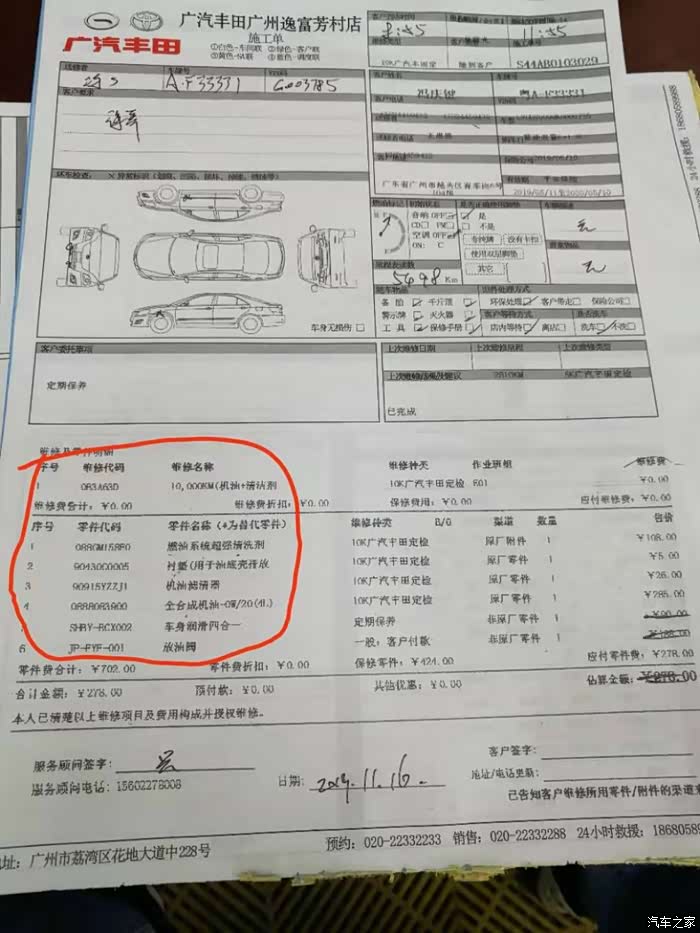 广汽丰田
广汽丰田广州逸富芳村店
施工单
①白色-车间联 ②绿色-客户联
③黄色-SL联 ④蓝色-调度联
送修者 车牌号 VIN码
A·F33331 G003785
客户要求
10K广汽丰田定检 随到客户 S44AB0103029
客户姓名 车牌号
冯庆键
客户地址
广东省广州市
2019/05/11至2020/05/10
环车检查：
车身无损伤 □
燃油标记 初始状态 是否正确使用脚垫 车辆描述
音响 OFF 是
CD□ FM□ 不是
空调 OFF
ON: C
专纯牌 没有卡扣
使用双层脚垫
其它
贵重物品
无
5498 Km
随车物品 旧件处理方式
备胎 千斤顶 环保处理 客户带走□ 保险公司□
警示牌 灭火器 客户等待方式 是否洗车
工具 保修手册 店内等待 离店□ 洗车 不洗□
客户委托事项
定期保养
上次维修日期 上次维修里程 上次维修类型
2810KM 5K广汽丰田定检
已完成
维修及零件明细
序号 维修代码 维修名称 维修种类 作业班组 维修费
1 0B3A63D 10,000KM(机油+清洁剂 10K广汽丰田定检 E01
维修费合计：￥0.00 维修费折扣：￥0.00 保修费用：￥0.00 应付维修费：￥0.00
序号 零件代码 零件名称（#为替代零件） 维修种类 B/G 渠道 数量 售价
1 燃油系统超强清洗剂 10K广汽丰田定检 原厂附件 1 ￥108.00
2 90430C0005 衬垫(用于油底壳排放 10K广汽丰田定检 原厂零件 1 ￥5.00
3 90915YZZJ1 机油滤清器 10K广汽丰田定检 原厂零件 1 ￥26.00
4 0888083900 全合成机油-0W/20(4L) 10K广汽丰田定检 原厂零件 1 ￥285.00
SHBY-RCX002 车身润滑四合一 定期保养 非原厂零件 1 ￥90.00
6 JP-FYF-001 放油阀 一般：客户付款 非原厂零件 1 ￥188.00
零件费合计：￥702.00 零件费折扣：￥0.00 保修零件：￥424.00 应付零件费：￥278.00
合计金额：￥278.00 预付款：￥0.00 其他优惠：￥0.00 估算金额：￥278.00
本人已清楚以上维修项目及费用构成并授权维修。
服务顾问签字： 客户签字：
服务顾问电话：15602278008 日期：2019.11.16. 地址/电话更新：
已告知客户维修所用零件/附件的渠道来
地址：广州市荔湾区花地大道中228号 预约：020-22332233 销售：020-22332288 24小时救援：1868058
24小时救援：18680589888
汽车之家